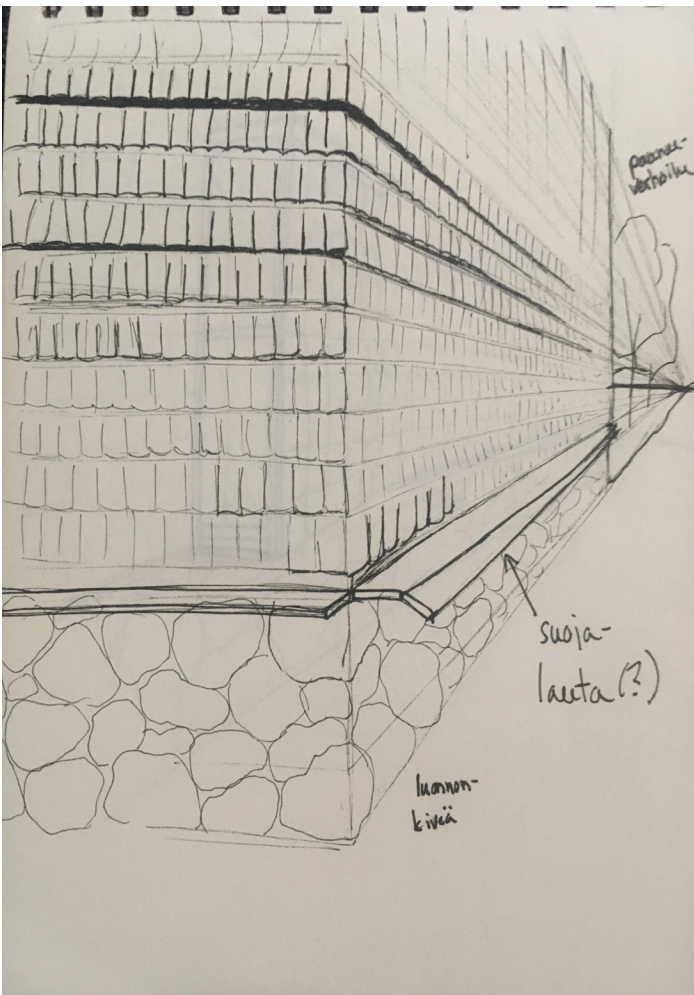 paanu-
verhoilu
suoja-
lauta (?)
luonnon-
kiveä